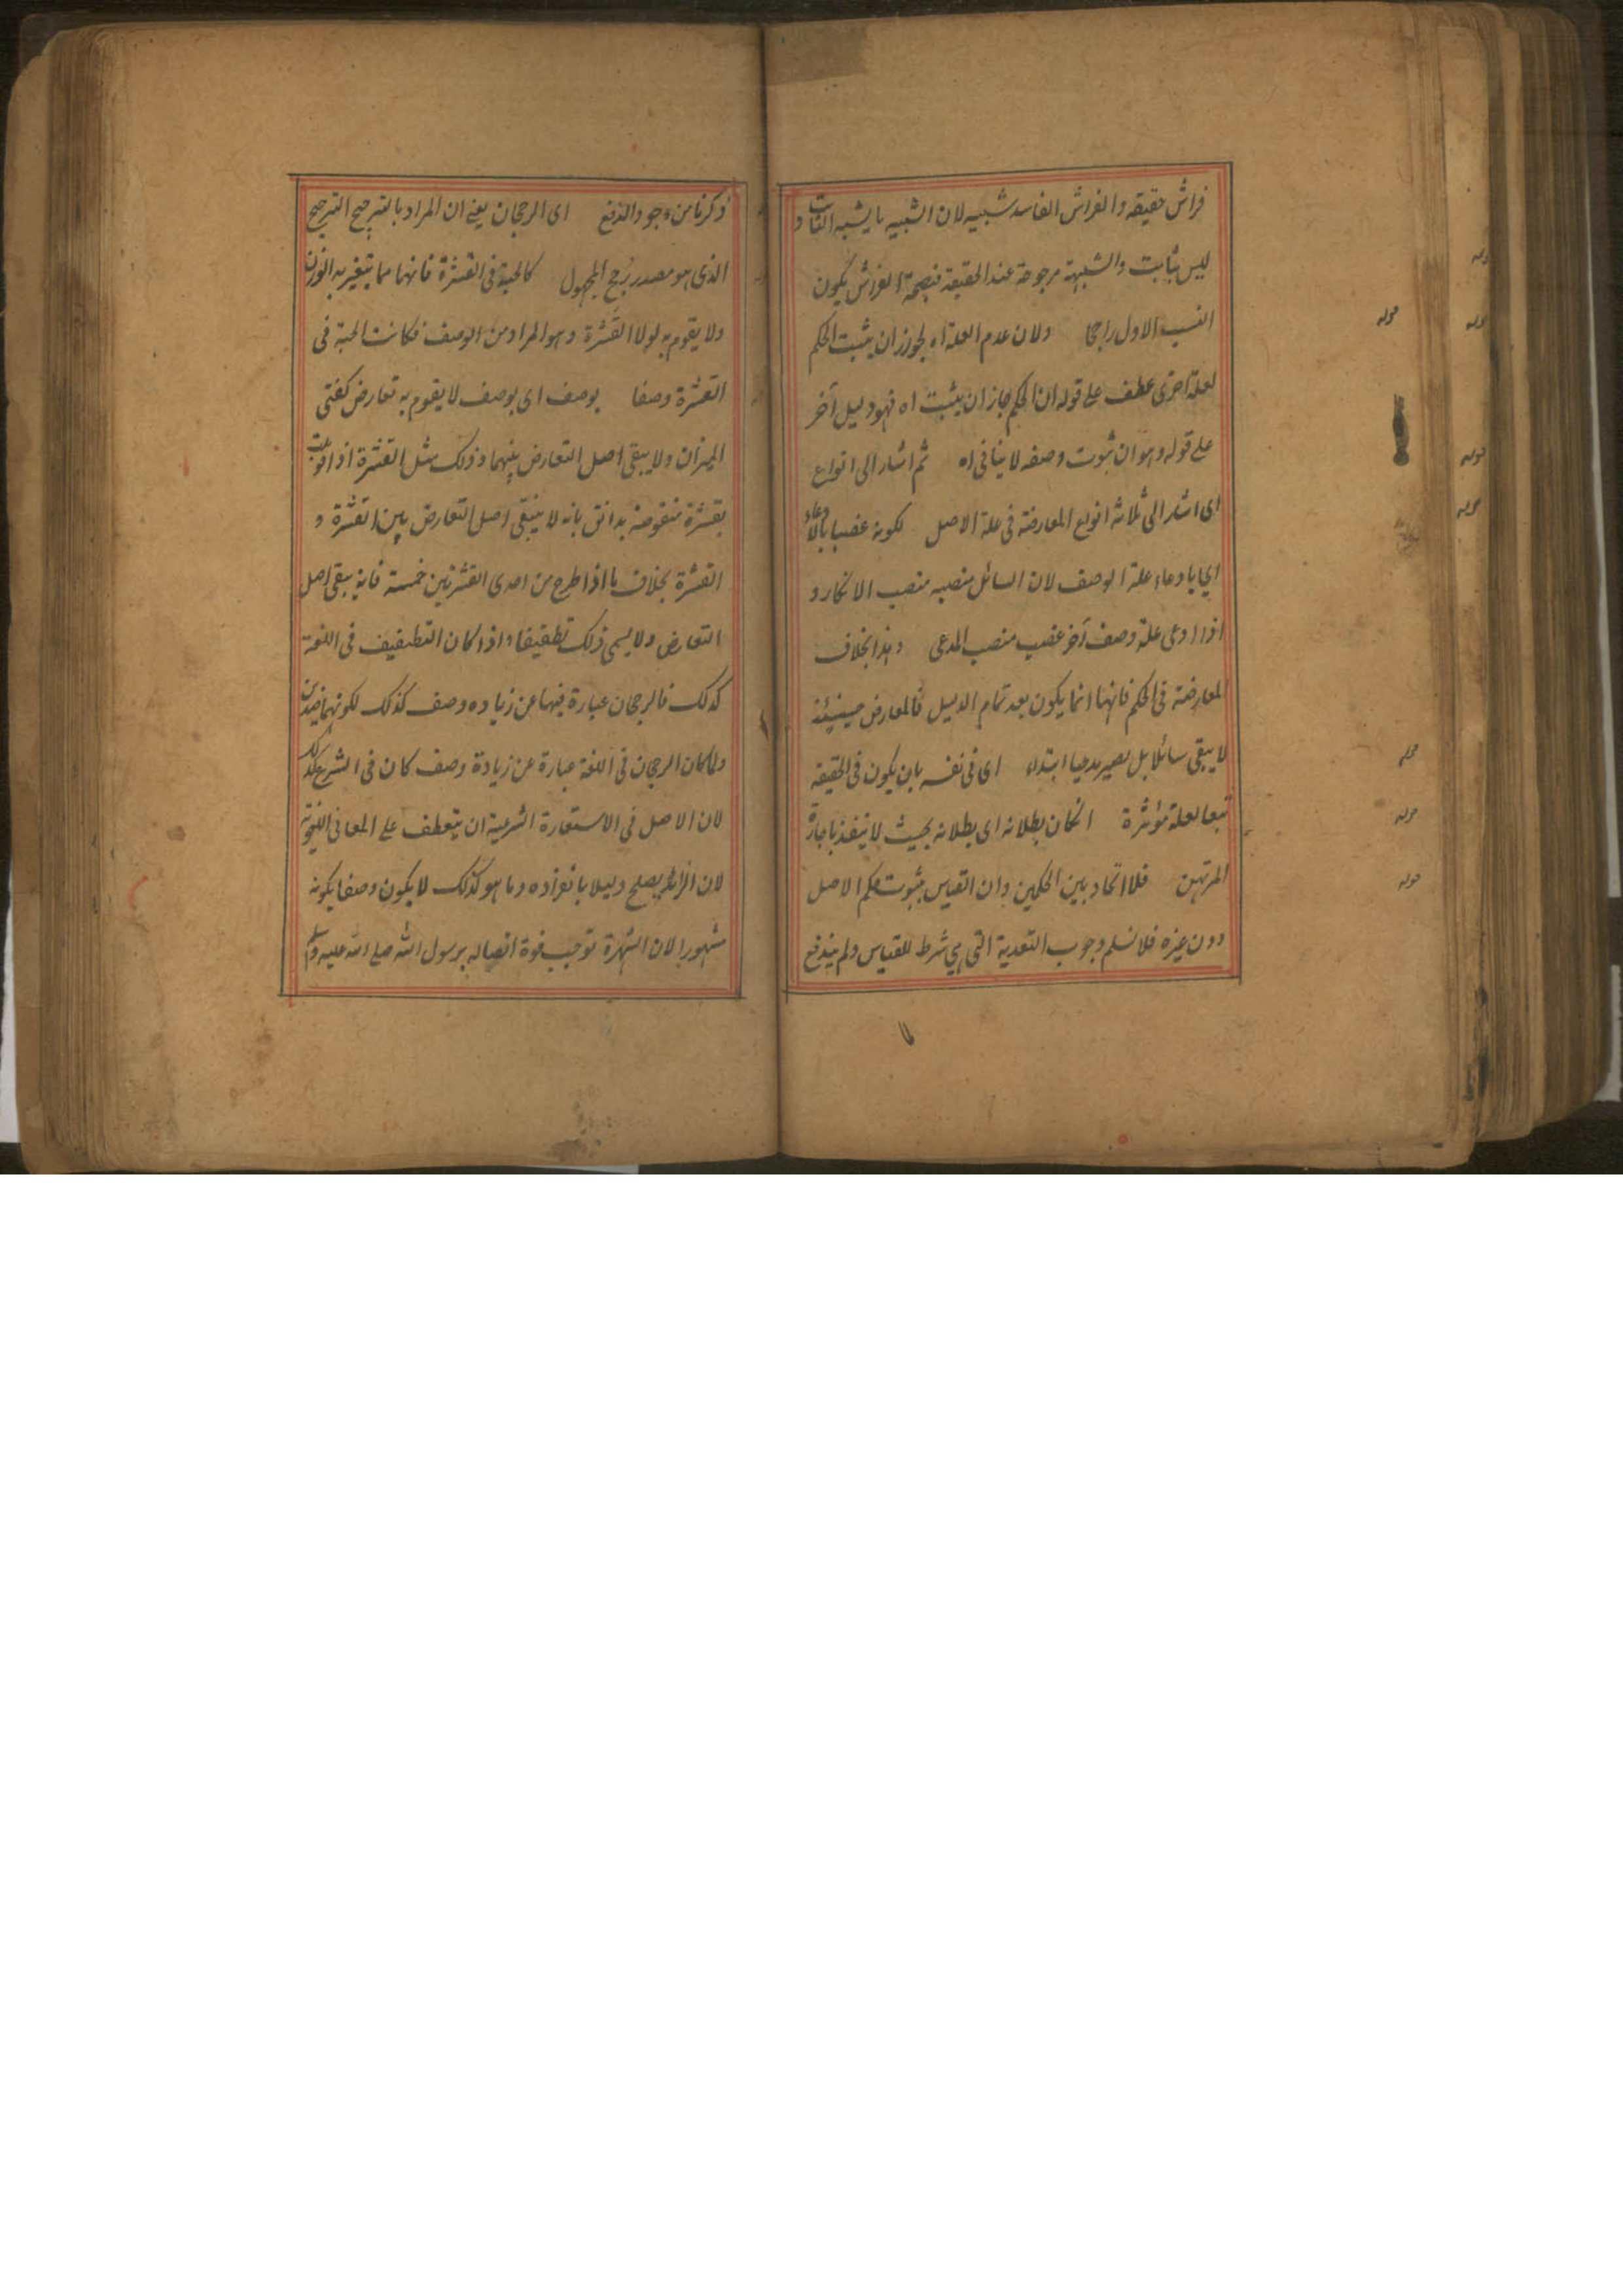 فراش حقيقه والفراش الفاسد شبيه لان الشبيه ما يشبه الثابت و
ليس بثابت والشبهة مرجوحة عند الحقيقة فبصحة الفراش يكون
النسب الاول راجحا ولان عدم العلة اه لجوز ان يثبت الحكم
لعلة اخرى عطف على قوله ان الحكم جاز ان يثبت اه فهو دليل آخر
على قوله وهو ان ثبوت وصفه لا ينافى اه ثم اشار الى انواع
اى اشار الى ثلاثة انواع المعارضة فى علة الاصل لكونه غصبا بالادعاء
اى بادعاء علة الوصف لان السائل منصبه منصب الانكار و
اذا ادعى علة وصف آخر غصب منصب المدعى وهذا بخلاف
المعارضة فى الحكم فانها انما يكون بعد تمام الدليل فالمعارض حينئذ
لا يبقى سائلا بل يصير مدعيا ابتداء اى فى نفسه بان يكون فى الحقيقه
تبعا لعلة مؤثرة انكان بطلانه اى بطلانه بحيث لا ينفذ باجازة
المرتهن فلا اتحاد بين الحكمين وان القياس بثبوت حكم الاصل
دون غيره فلا نسلم وجوب التعدية التى هي شرط للقياس ولم يندفع
قوله
قوله
قوله
قوله
قوله
قوله
قوله
ذكرنا من وجوه الدفع اى الرجحان يعنى ان المراد بالترجيح الترجيح
الذى هو مصدر رُجح المجهول كالحبة فى العشرة فانها مما يتغير به الوزن
ولا يقوم به لولا العَشرة وهو المراد من الوصف فكانت الحبة فى
العشرة وصفا بوصف اى بوصف لا يقوم به تعارض كفتى
الميزان ولا يبقى اصل التعارض بينهما وذلك مثل العشرة اذا قوبلت
بعشرة منقوصة بدانق بانه لا ينبقى اصل التعارض بين العشرة و
العشرة بخلاف ما اذا طرح من احدى العشرتين خمسة فانه يبقى اصل
التعارض ولا يسمى ذلك تطفيفا واذا كان التطفيف فى اللغة
كذلك فالرجحان عبارة فيها عن زياده وصف كذلك لكونهما ضدين
ولما كان الرجحان فى اللغة عبارة عن زيادة وصف كان فى الشرع كذلك
لان الاصل فى الاستعارة الشرعية ان يتعطف على المعانى اللغوية
لان الزائد يصلح دليلا بانفراده وما هو كذلك لا يكون وصفا يكونه
مشهورا لان الشهرة توجب قوة اتصاله برسول الله صلى الله عليه وسلم